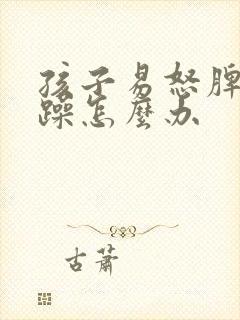 孩子易怒脾
躁怎麼办
古蕭